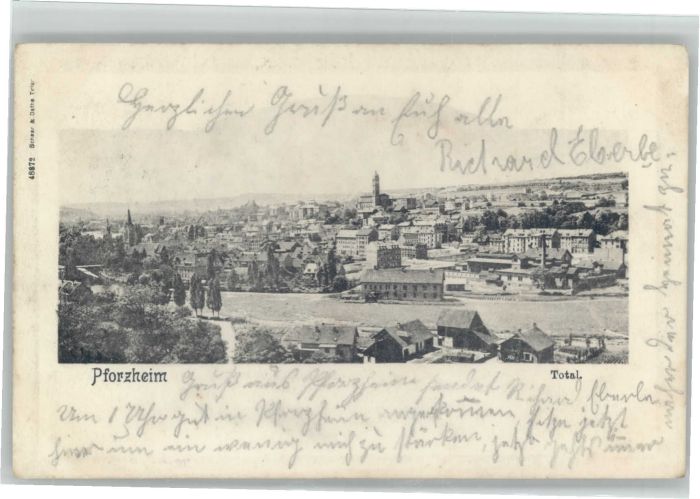 Herzlichen Gruß an Euch alle
Richard Eberle
48872 Scheer & Dathe Trier
Pforzheim
Total.
Gruß aus Pforzheim sendet Richard Eberle
Um 1 Uhr gut in Pforzheim angekommen sitze jetzt
hier um ein wenig mich zu stärken, jetzt geht's immer
näher der Heimat zu.